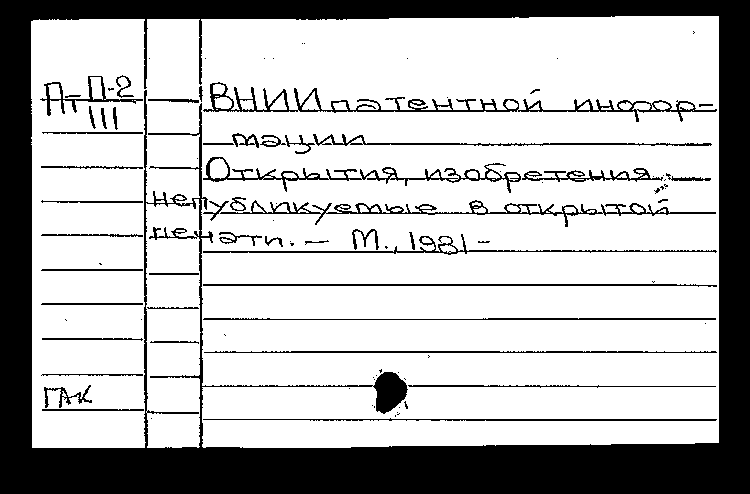 Пт П-2
III
ВНИИ патентной инфор-
мации
Открытия, изобретения
непубликуемые в открытой
печати. — М., 1981 -
ГАК